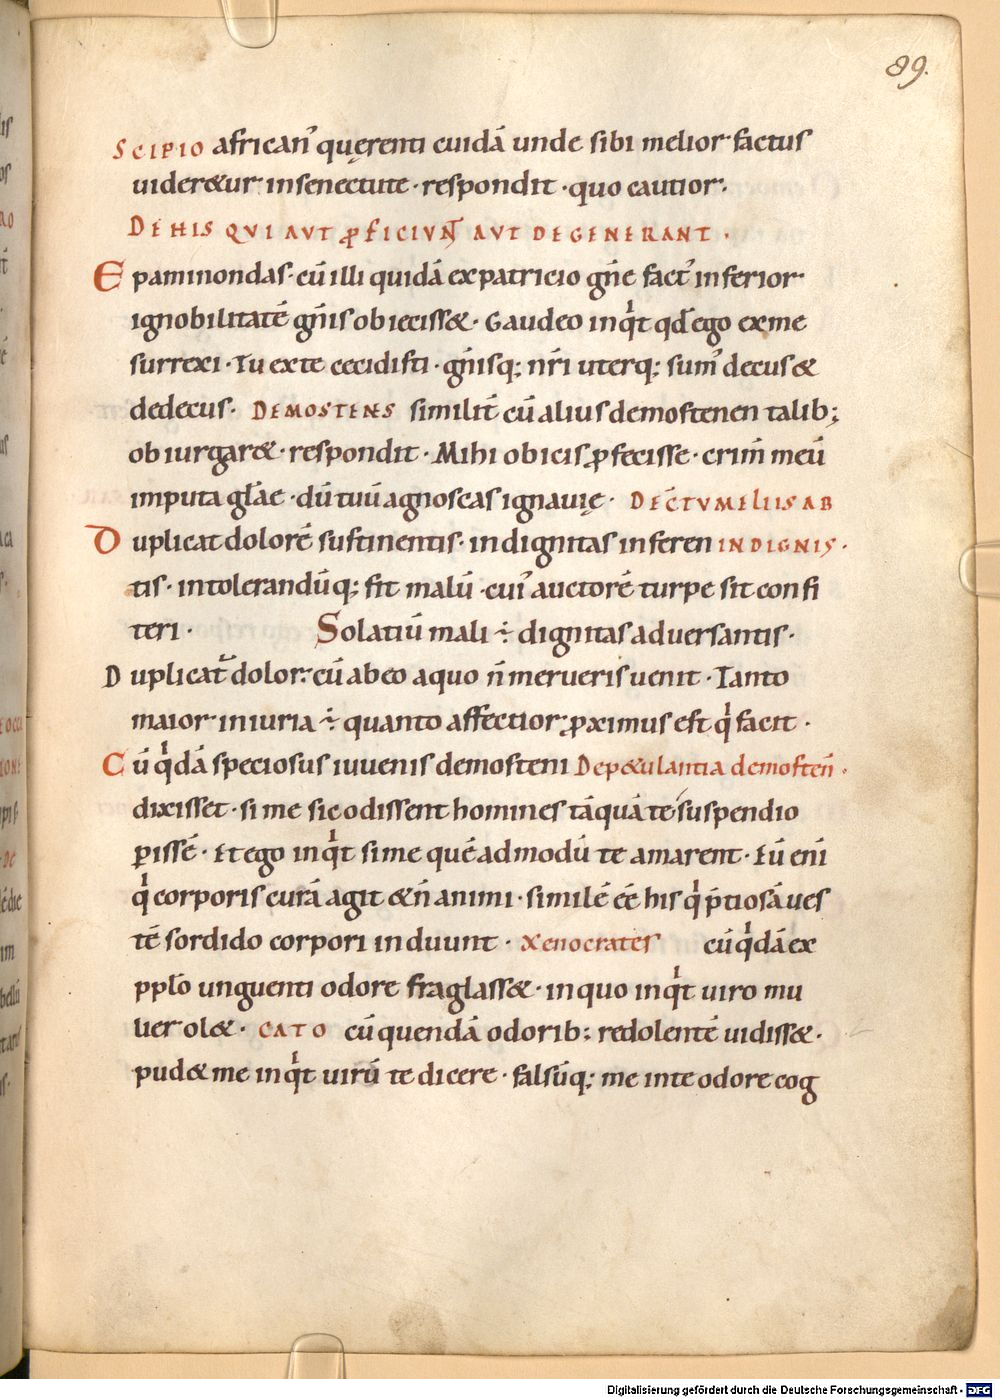 89.
SCIPIO african᾽ querenti cuidā unde sibi melior factus
uider&ur insenectute · respondit · quo cautior.
DE HIS QVI AVT ꝓFICIVNT AVT DEGENERANT .
Epaminondas· cū illi quidā expatricio gn̄e fact᾽ inferior
ignobilitatē gn̄is obieciss&· Gaudeo inq͛t qd̄ ego ex me
surrexi · Tu exte cecidisti · gn̄isq; nr̄i uterq; sum᾽ decus &
dedecus· DEMOSTENS similit̄ cū alius demostenen talib;
obiurgar& · respondit · Mihi obicis ꝓfecisse · crim̄ meū
imputa gl̄ae · dū tuū agnoscas ignauię · DE C̄TVMELIIS AB
Duplicat dolorē sustinentis· indignitas inferen INDIGNIS·
tis· intolerandūq; fit malū ·cui᾽ auctorē turpe sit confi
teri · Solatiū mali ÷ dignitas aduersantis·
Duplicat᷑ dolor· cū abeo aquo n̄ merueris uenit · Tanto
maior iniuria ÷ quanto affectior ꝓximus est q͛ facit ·
Cū q͛dā speciosus iuuenis demosteni De p&ulantia demosten̄ ·
dixisset · si me sic odissent homines tāquā te suspendio
ꝑissē · Et ego inq͛t si me quēadmodū te amarent · Eū eni̅
q͛ corporis curā agit & n̄ animi · similē ēē his q͛ p̄tiosā ues
tē sordido corpori induunt · Xenocrates cū q͛dā ex
ppl̄o unguenti odore fraglass& · inquo inq͛t uiro mu
lier ol& · CATO cū quendā odorib; redolentē uidiss& ·
pud& me inq͛t uirū te dicere · falsūq; me inte odore cog
Digitalisierung gefördert durch die Deutsche Forschungsgemeinschaft - DFG